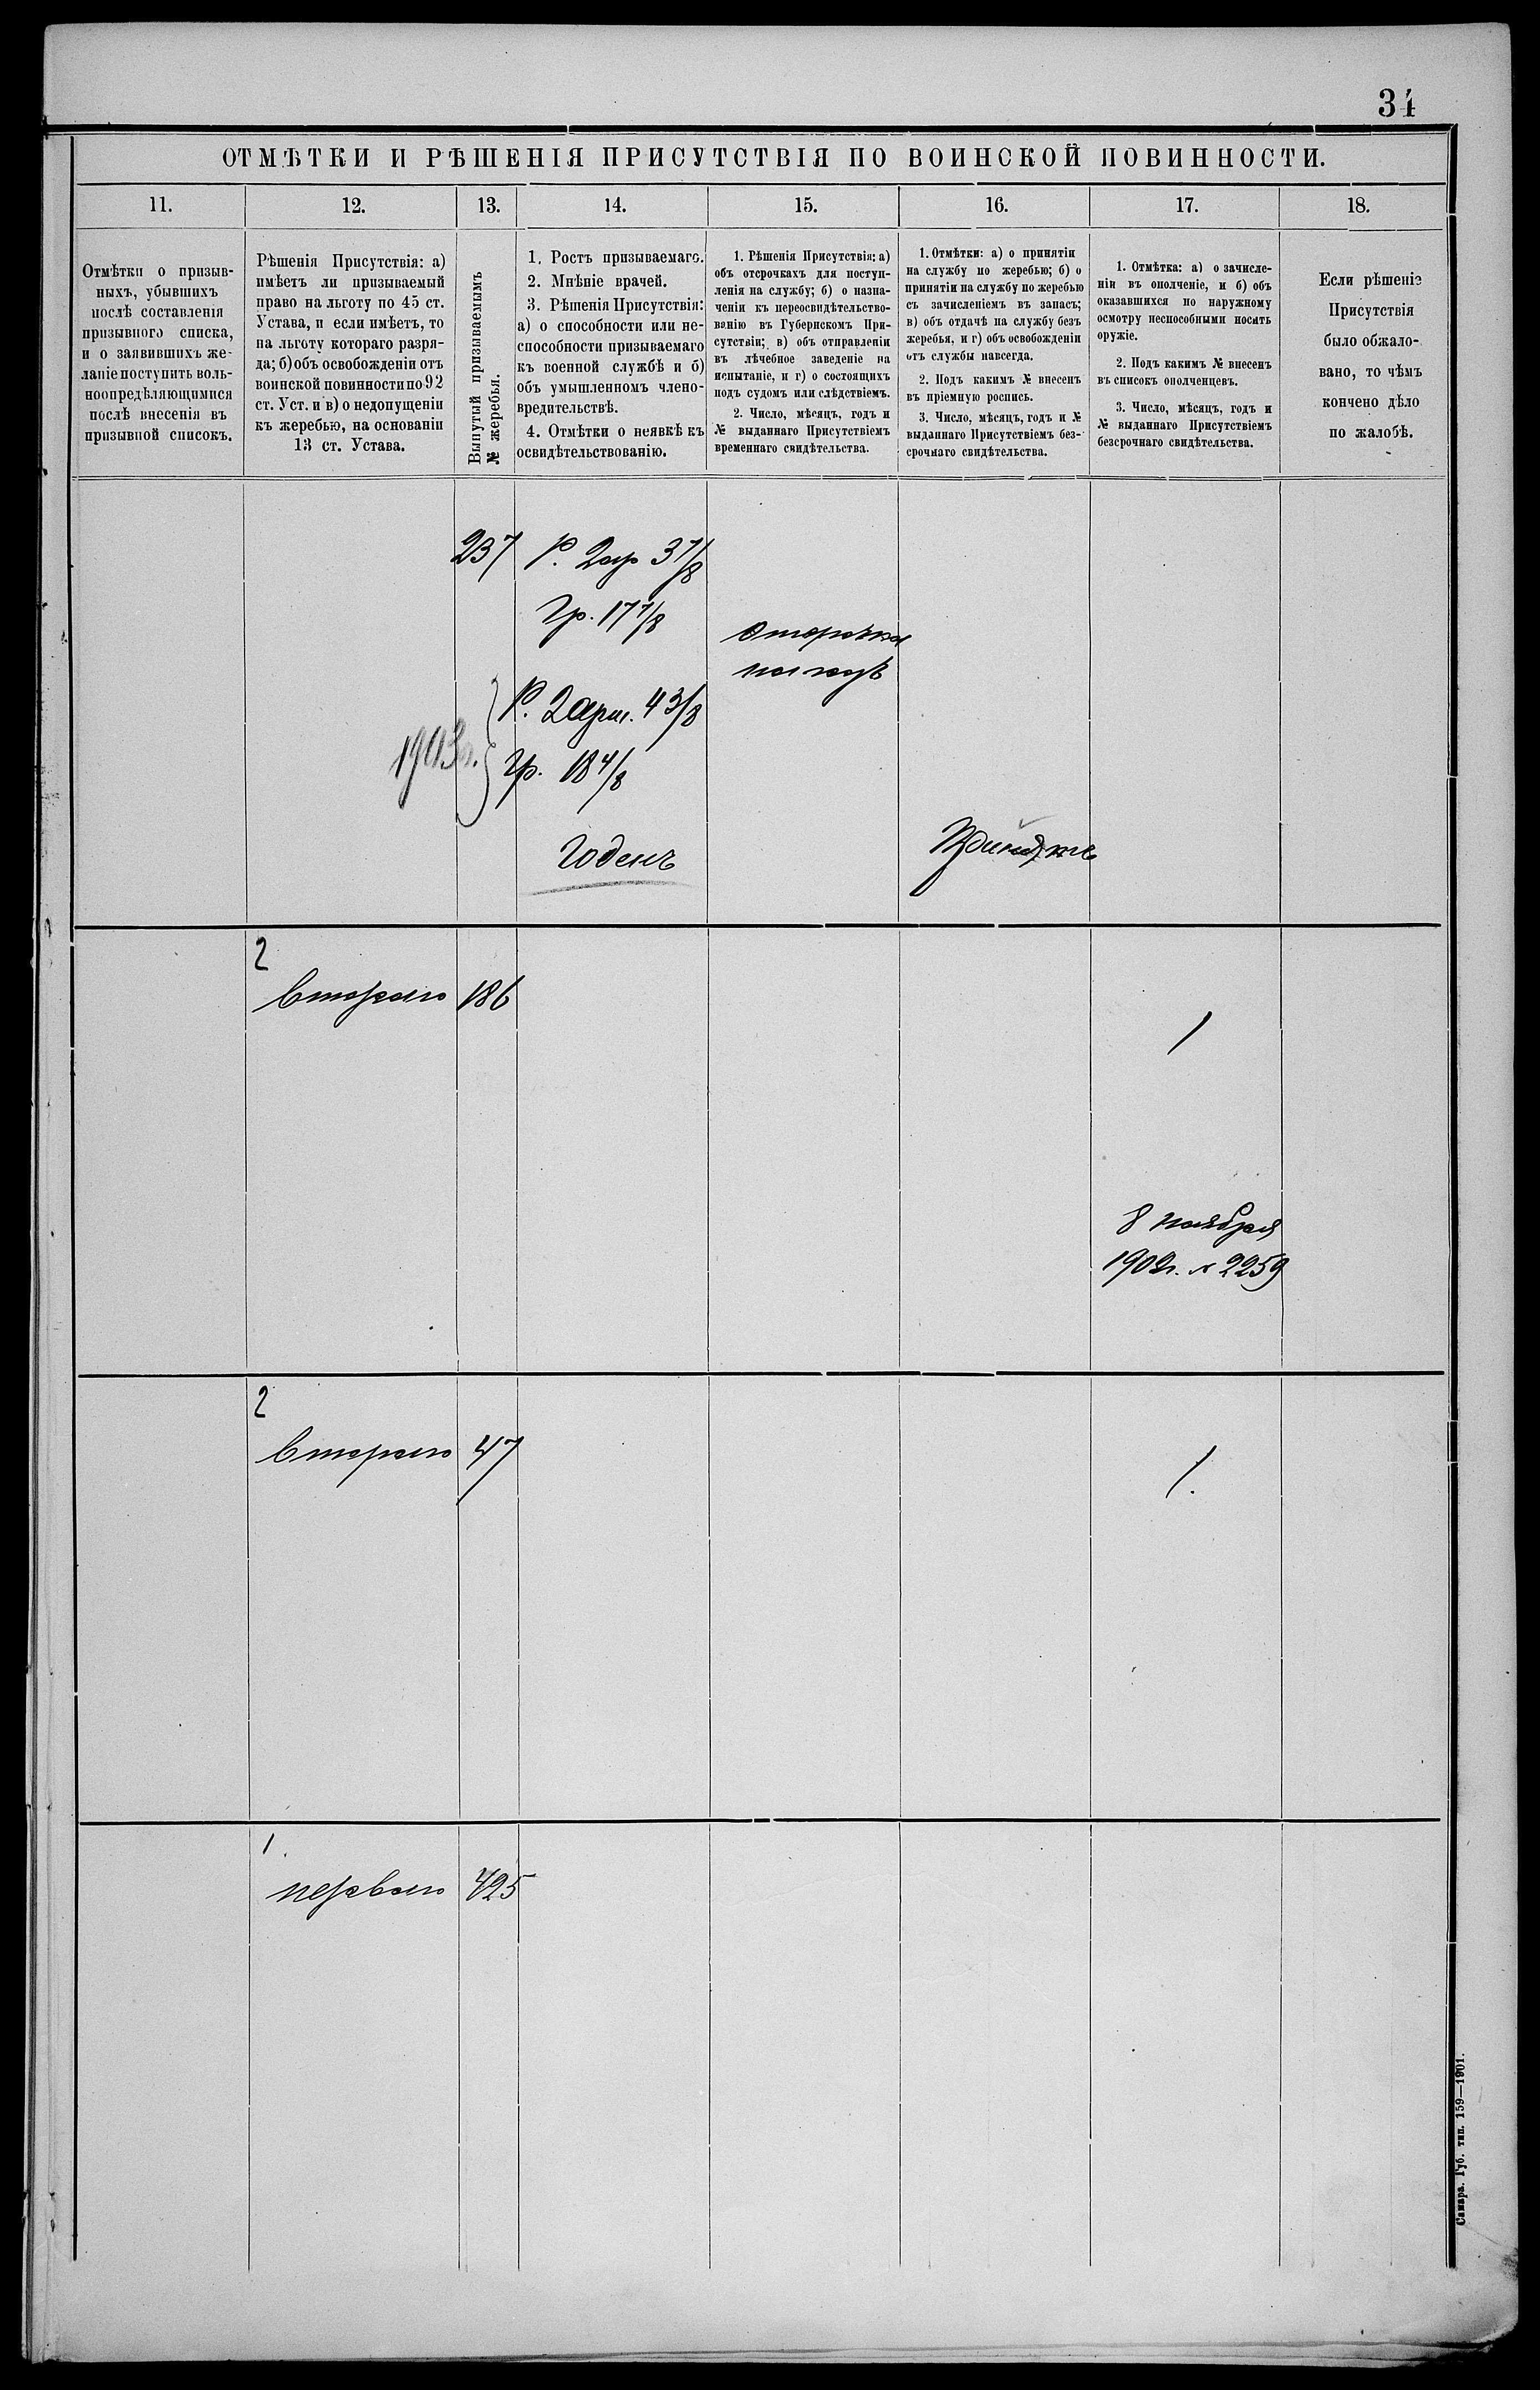 34
ОТМѢТКИ И РѢШЕНІЯ ПРИСУТСТВІЯ ПО ВОИНСКОЙ ПОВИННОСТИ.
11.
12.
13.
14.
15.
16.
17.
18.
Отмѣтки о призыв-
ныхъ, убывшихъ
послѣ составленія
призывного списка,
и о заявившихъ же-
ланіе поступить воль-
ноопредѣляющимися
послѣ внесенія въ
призывной списокъ.
Рѣшенія Присутствія: а)
имѣетъ ли призываемый
право на льготу по 45 ст.
Устава, и если имѣетъ, то
на льготу котораго разря-
да; б) объ освобожденіи отъ
воинской повинности по 92
ст. Уст. и в) о недопущеніи
къ жеребью, на основаніи
13 ст. Устава.
Вынутый призываемымъ
№ жеребья.
1. Ростъ призываемаго.
2. Мнѣніе врачей.
3. Рѣшенія Присутствія:
а) о способности или не-
способности призываемаго
къ военной службѣ и б)
объ умышленномъ члено-
вредительствѣ.
4. Отмѣтки о неявкѣ къ
освидѣтельствованію.
1. Рѣшенія Присутствія: а)
объ отсрочкахъ для поступ-
ленія на службу; б) о назна-
ченіи къ переосвидѣтельство-
ванію въ Губернскомъ При-
сутствіи; в) объ отправленіи
въ лѣчебное заведеніе на
испытаніе, и г) о состоящихъ
подъ судомъ или слѣдствіемъ.
2. Число, мѣсяцъ, годъ и
№ выданнаго Присутствіемъ
временнаго свидѣтельства.
1. Отмѣтки: а) о принятіи
на службу по жеребью; б) о
принятіи на службу по жеребью
съ зачисленіемъ въ запасъ;
в) объ отдачѣ на службу безъ
жеребья, и г) объ освобожденіи
отъ службы навсегда.
2. Подъ какимъ № внесенъ
въ пріемную роспись.
3. Число, мѣсяцъ, годъ и №
выданнаго Присутствіемъ без-
срочнаго свидѣтельства.
1. Отмѣтка: а) о зачисле-
ніи въ ополченіе, и б) объ
оказавшихся по наружному
осмотру неспособными носить
оружіе.
2. Подъ какимъ № внесенъ
въ списокъ ополченцевъ.
3. Число, мѣсяцъ, годъ и
№ выданнаго Присутствіемъ
безсрочнаго свидѣтельства.
Если рѣшеніе
Присутствія
было обжало-
вано, то чѣмъ
кончено дѣло
по жалобѣ.
237
Р. 2 ар 3 7/8
Гр. 17 7/8
отсрочка
на годъ
1903 г.
Р. 2 арш. 4 3/8
Гр. 18 4/8
Годенъ
Принятъ
2
второго
186
1
8 ноября
1902 г. № 2259
2
второго
47
1.
1.
первого
425
Самара. Губ. тип. 159—1901.